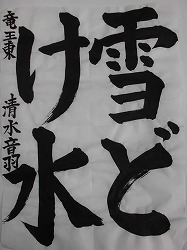 雪ど
け水
竜王東 清水音羽